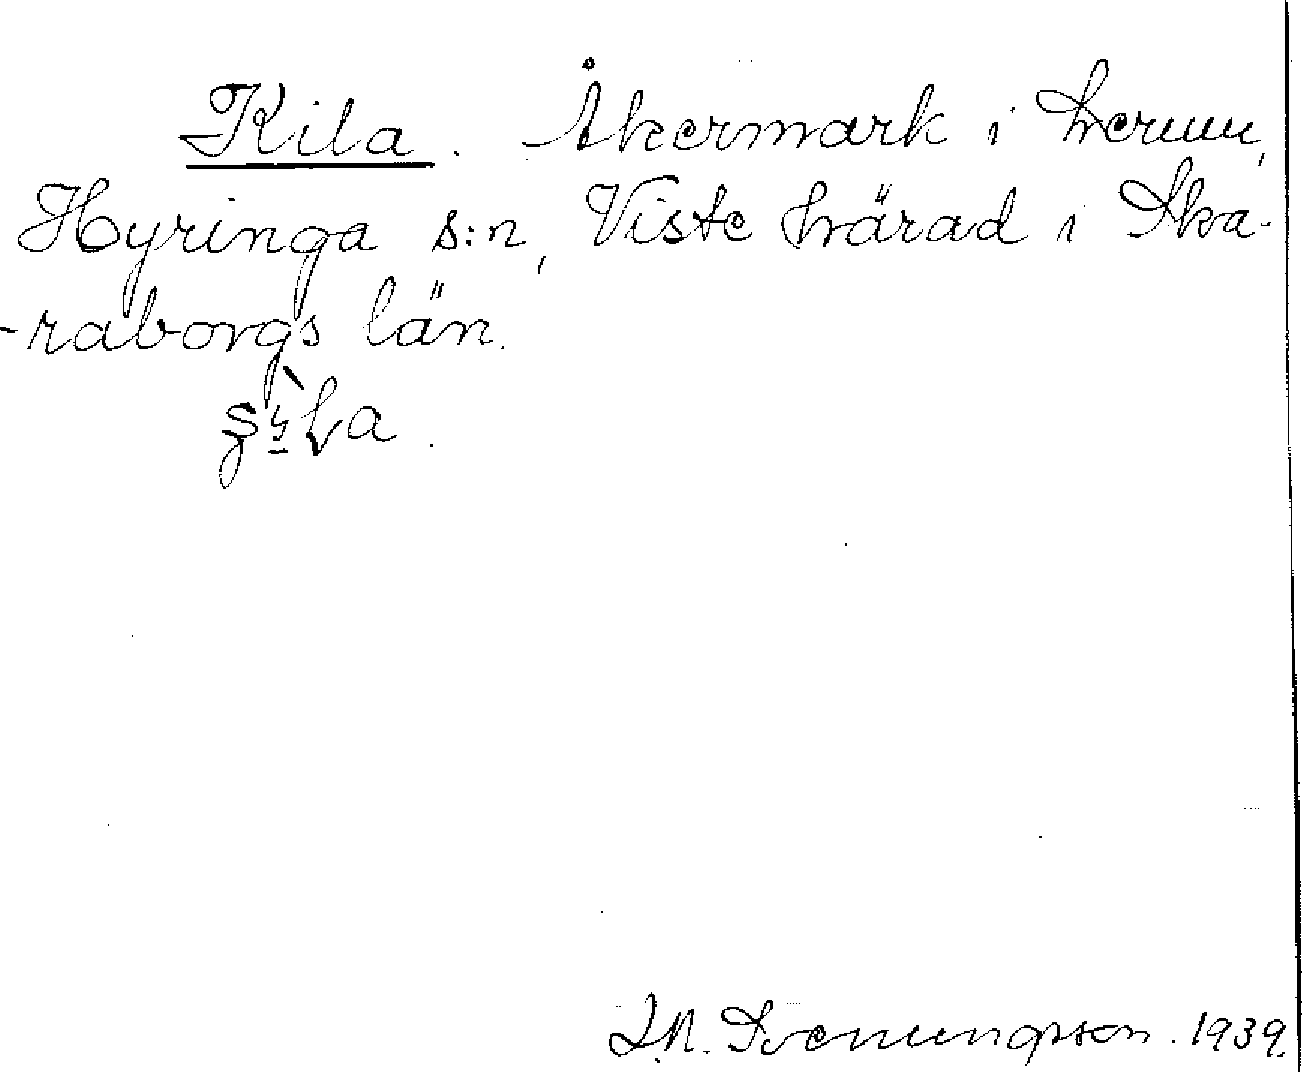 Kila. Åkermark i Lerum,
Hyringa s:n, Viste härad i Ska-
-raborgs län.
J.N. Svenungsson. 1939.